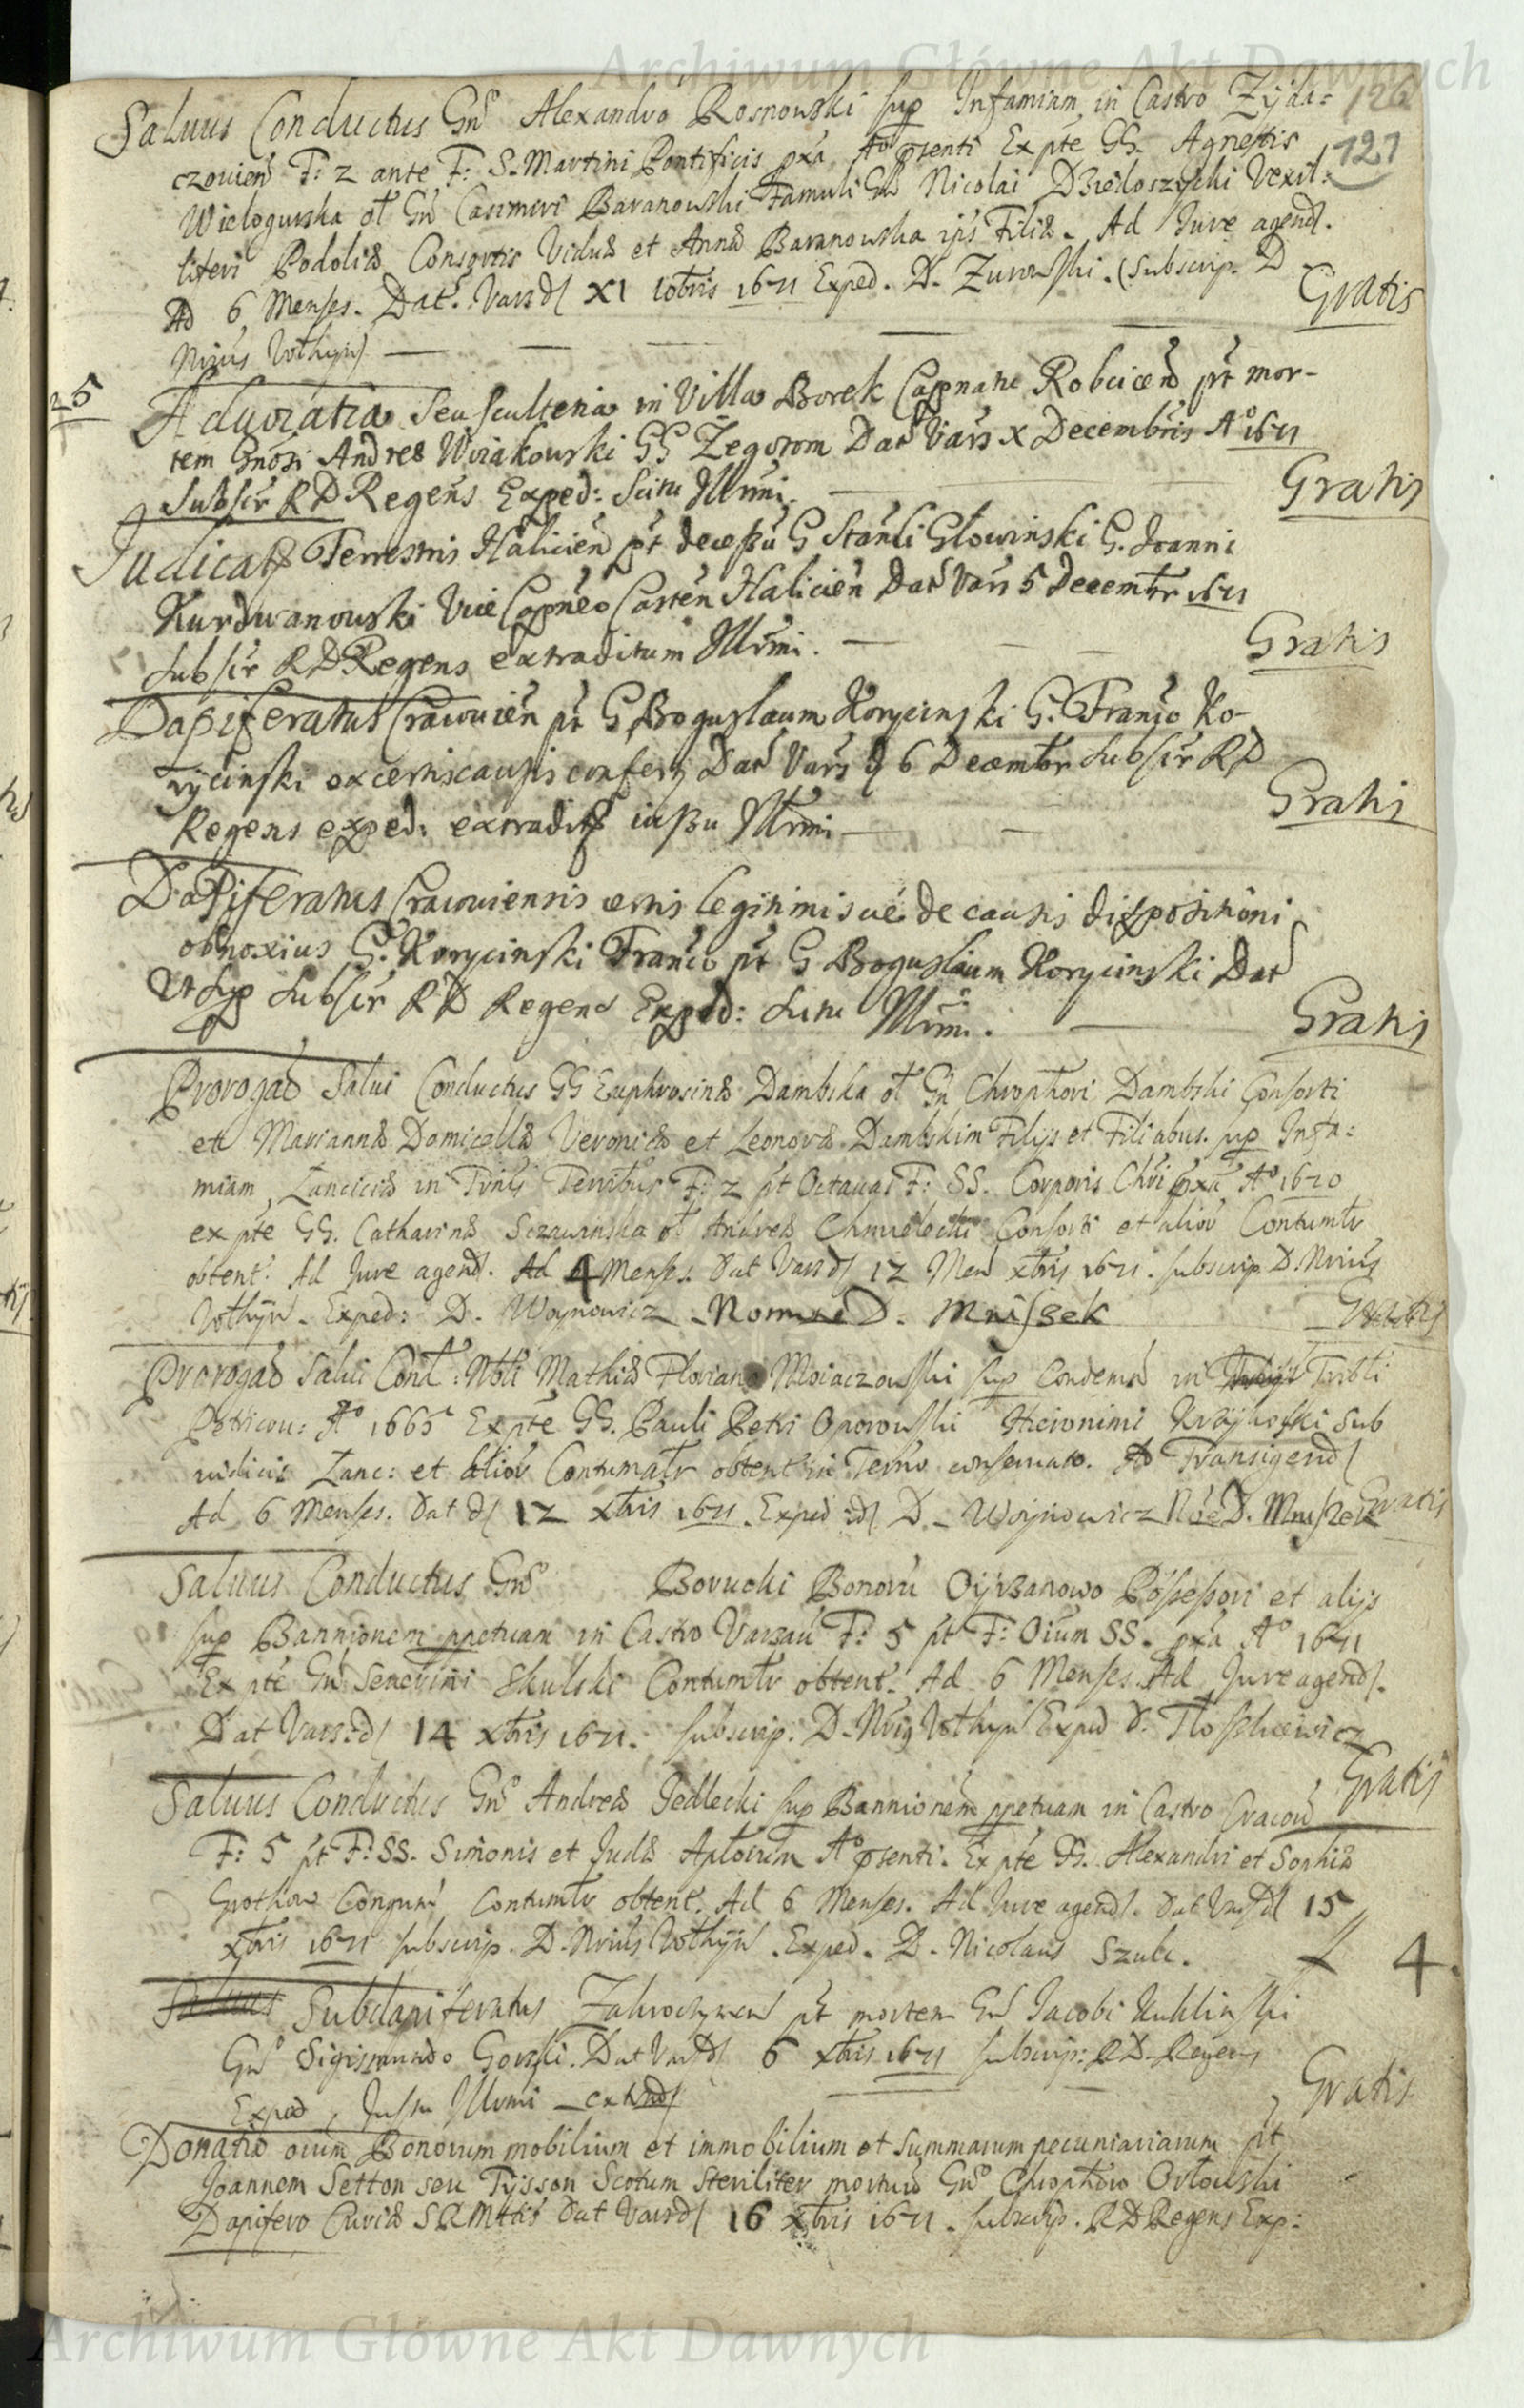 Archiwum Główne Akt Dawnych
126
127
Saluus Conductus Gnō Alexandro Rosnowski sup Infamiam in Castro Zyda=
czouien F: 2 ante F: S. Martini Pontificis pxa Aō psenti Ex pte GG. Agnetis
Wielogurska ol Gn Casimiri Baranowski Famuli Gn Nicolai Dziedoszycki Vexil:
liferi Podoliæ Consortis Viduæ et Annæ Baranowska ips Filiæ. Ad Jure agend.
Ad 6 Menses. Dat. Vars d XI 10bris 1671 Exped. D. Zurowski. (Subscrip. D
Nrius Wolhyn) Gratis
25
Aduocatia seu scultetia in Villa Borek Capnatu Robcicen pt mor-
tem Gnosi Andreæ Wirakowski GG Zegotom Dat Vars X Decembris Aō 1671
Subscr RD Regens Exped: Scitu Illrmi. Gratis
Judicat Terrestris Halicien pt decessu G Stanli Glowinski G. Joanni
Kurdwanowski Vice Capneo Castren Halicien Dat Vars 5 Decembr 1671
Subscr RD Regens extraditum Illrmi. Gratis
Dapiferatus Cracouien pt G Boguslaum Korycinski G. Franco Ko-
rycinski ex certis causis confertj Dat Vars d 6 Decembr Subscr RD
Regens exped: extradit iussu Illrmi Gratis
Dapiferatus Cracouiensis certis legitimisue de causis dispositioni
obnoxius G. Korycinski Franco pt G Boguslaum Korycinski Dat
Ut sup Subscr RD Regens Exped: Scitu Illrmi. Gratis
Prorogao Salui Conductus GG Euphrosinæ Dambska ol Gn Chrophori Dambski Consorti
ett Mariannæ Domicellæ Veronicæ et Leonoræ Dambskim Filijs et Filiabus. sup Infa:
miam, Lanciciæ in Trnis Terribus F: 2 pt Octauas F: SS. Corporis Chri pxa Aō 1670
ex pte GG. Catharinæ Sczawinska ol Andreæ Chmielecki Consorti et alior Contumlr
obtent. Ad Jure agend. Ad 4 Menses. Dat Vars d 12 Men xbris 1671. subscrip D. Nrius
Wolhyn. Exped: D. Woynowicz Nomine D. Mniszek Gratis
Prorogao Salui Cond: Nbli Mathiæ Floriano Moiaczowski sup Condemn in Tribli
Petricou: Aō 1665 Ex pte GG. Pauli Petri Oporowski Hieronimi Krayewski Sub
iudicis Lanc: et alior Contumatr obtent in Termo conseruato. Ad Transigend
Ad 6 Menses. Dat d 12 xbris 1671. Exped d D. Woynowicz Noie D. Mniszek Gratis
Saluus Conductus Gnō Borucki Bonoru Oyrzanowo Possessori et alijs
sup Bannionem ppetuam in Castro Varsau F: 5 pt F: Oium SS. pxa Aō 1671
Ex pte Gn Seuerini Skulski Contumlr obtent. Ad 6 Menses. Ad Jure agend.
Dat Vars d 14 xbris 1671. subscrip. D. Nrius Wolhyn Exped D. Tloszkiewicz
Gratis
Saluus Conductus Gnō Andreæ Jedlecki sup Bannionem ppetuam in Castro Cracou
F: 5 pt F: SS. Simonis et Judæ Aplorum Aō psenti. Ex pte GG. Alexandri et Sophiæ
Contumlr obtent. Ad 6 Menses. Ad Jure agend. Dat Vars d 15
xbris 1671 subscrip. D. Nrius Wolhyn. Exped. D. Nicolaus Szulc. f 4.
Saluus Subdapiferatus Zakroczymen pt mortem Gn Jacobi Kuklinski
Gnō Sigismundo Gorski. Dat Vars d 6 xbris 1671 subscrip: RD Regens
Exped, Jussu Illrmi extrad Gratis
Donatio oium Bonorum mobilium et immobilium et summarum pecuniariarum pt
Joannem Setton seu Tysson Scotum steriliter mortuu Gnō Chrophoro Orlowski
Dapifero Curiæ SRMttis Dat Vars d 16 xbris 1671. subscrip. RD Regens Exp:
Archiwum Główne Akt Dawnych